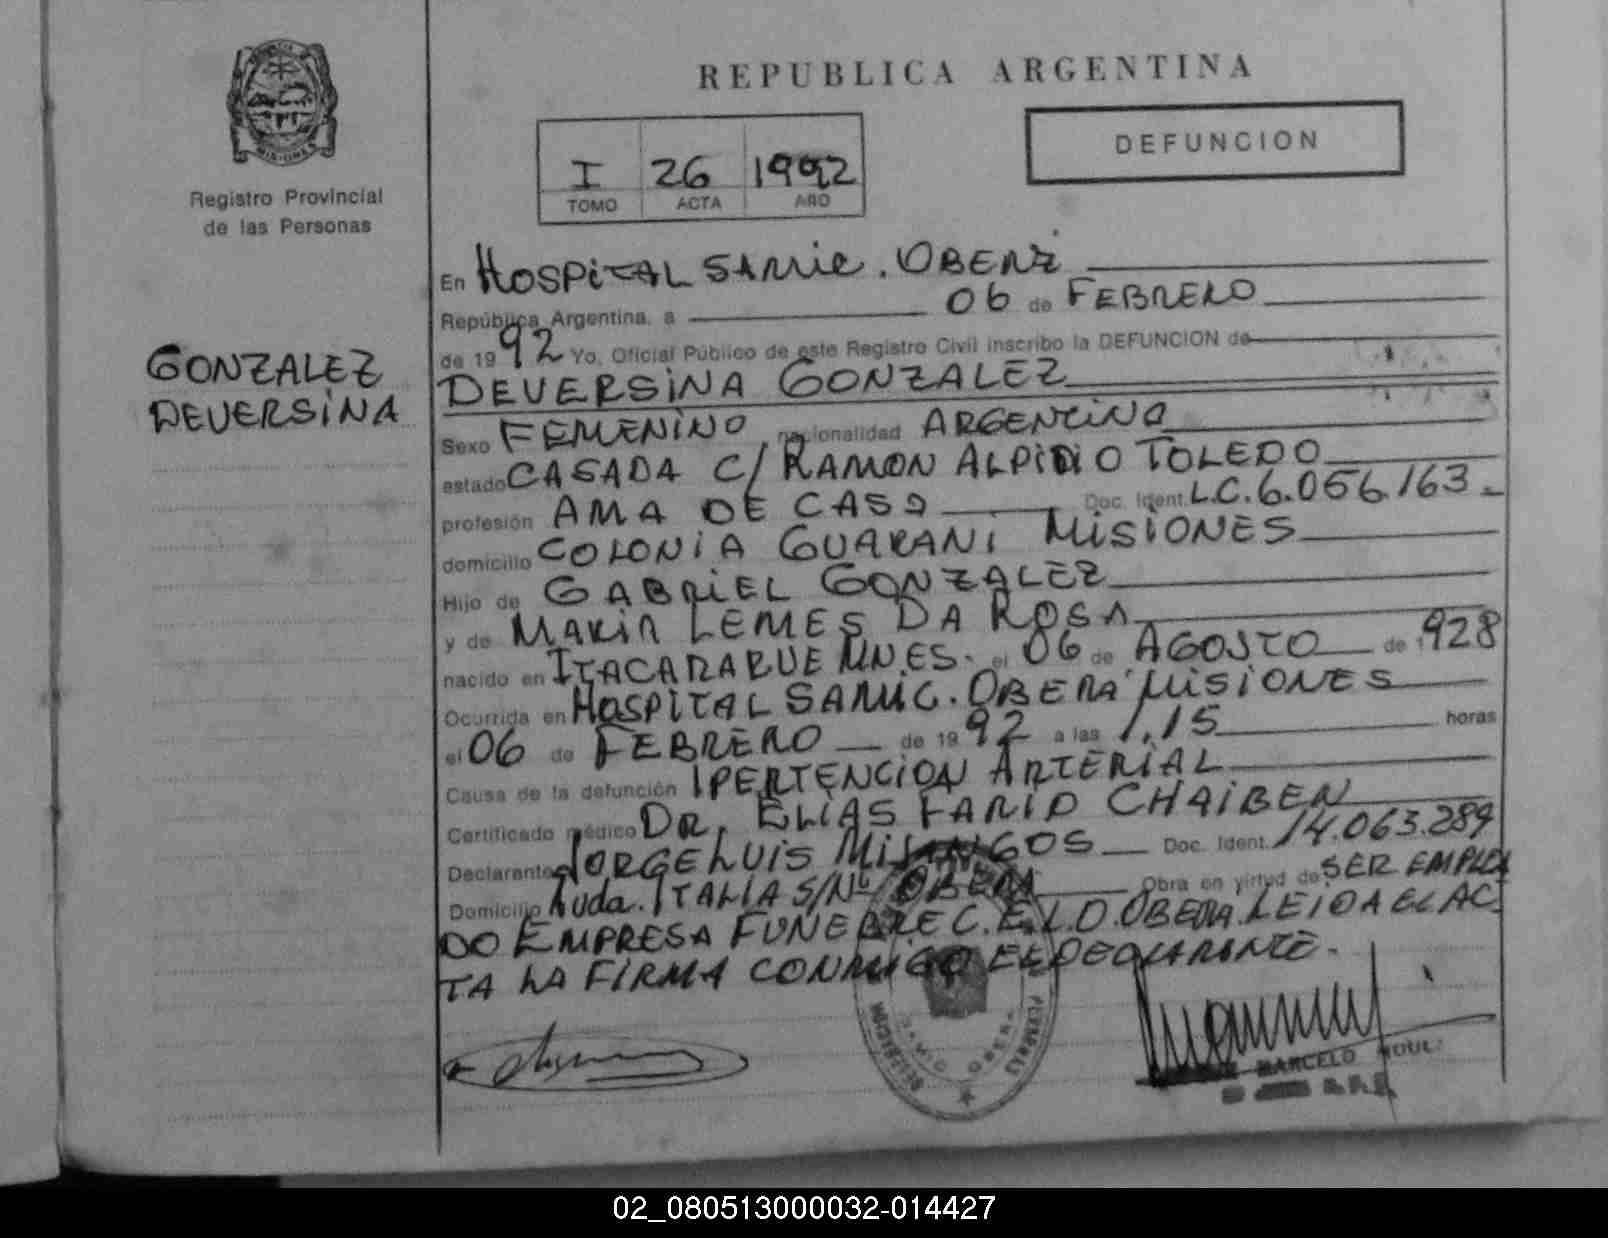 REPUBLICA ARGENTINA
DEFUNCION
I 26 1992
TOMO ACTA AÑO
MISIONES
Registro Provincial
de las Personas
GONZALEZ
DEVERSINA
En HOSPITAL SAMIC. OBERA
República Argentina, a 06 de FEBRERO
de 1992 Yo, Oficial Público de este Registro Civil inscribo la DEFUNCION de
DEVERSINA GONZALEZ
Sexo FEMENINO nacionalidad ARGENTINA
estado CASADA C/ RAMON ALPIDIO TOLEDO
profesión AMA DE CASA Doc. Ident. L.C. 6.056.163.-
domicilio COLONIA GUARANI MISIONES
Hijo de GABRIEL GONZALEZ
y de MARIA LEMES DA ROSA
nacido en ITACARARUE MNES. el 06 de AGOSTO de 1928
Ocurrida en HOSPITAL SAMIC. OBERA MISIONES
el 06 de FEBRERO de 1992 a las 1.15 horas
Causa de la defunción IPERTENCION ARTERIAL
Certificado médico DR. ELIAS FARID CHAIBEN
Declarante JORGE LUIS Doc. Ident. 14.063.289
Domicilio Avda. ITALIA S/Nº OBERA Obra en virtud de SER EMPLEA
DO EMPRESA FUNEBRE C.E.L.O. OBERA. LEIDA EL AC-
TA LA FIRMA CONMIGO EL DECLARANTE.-
MARCELO
02_080513000032-014427